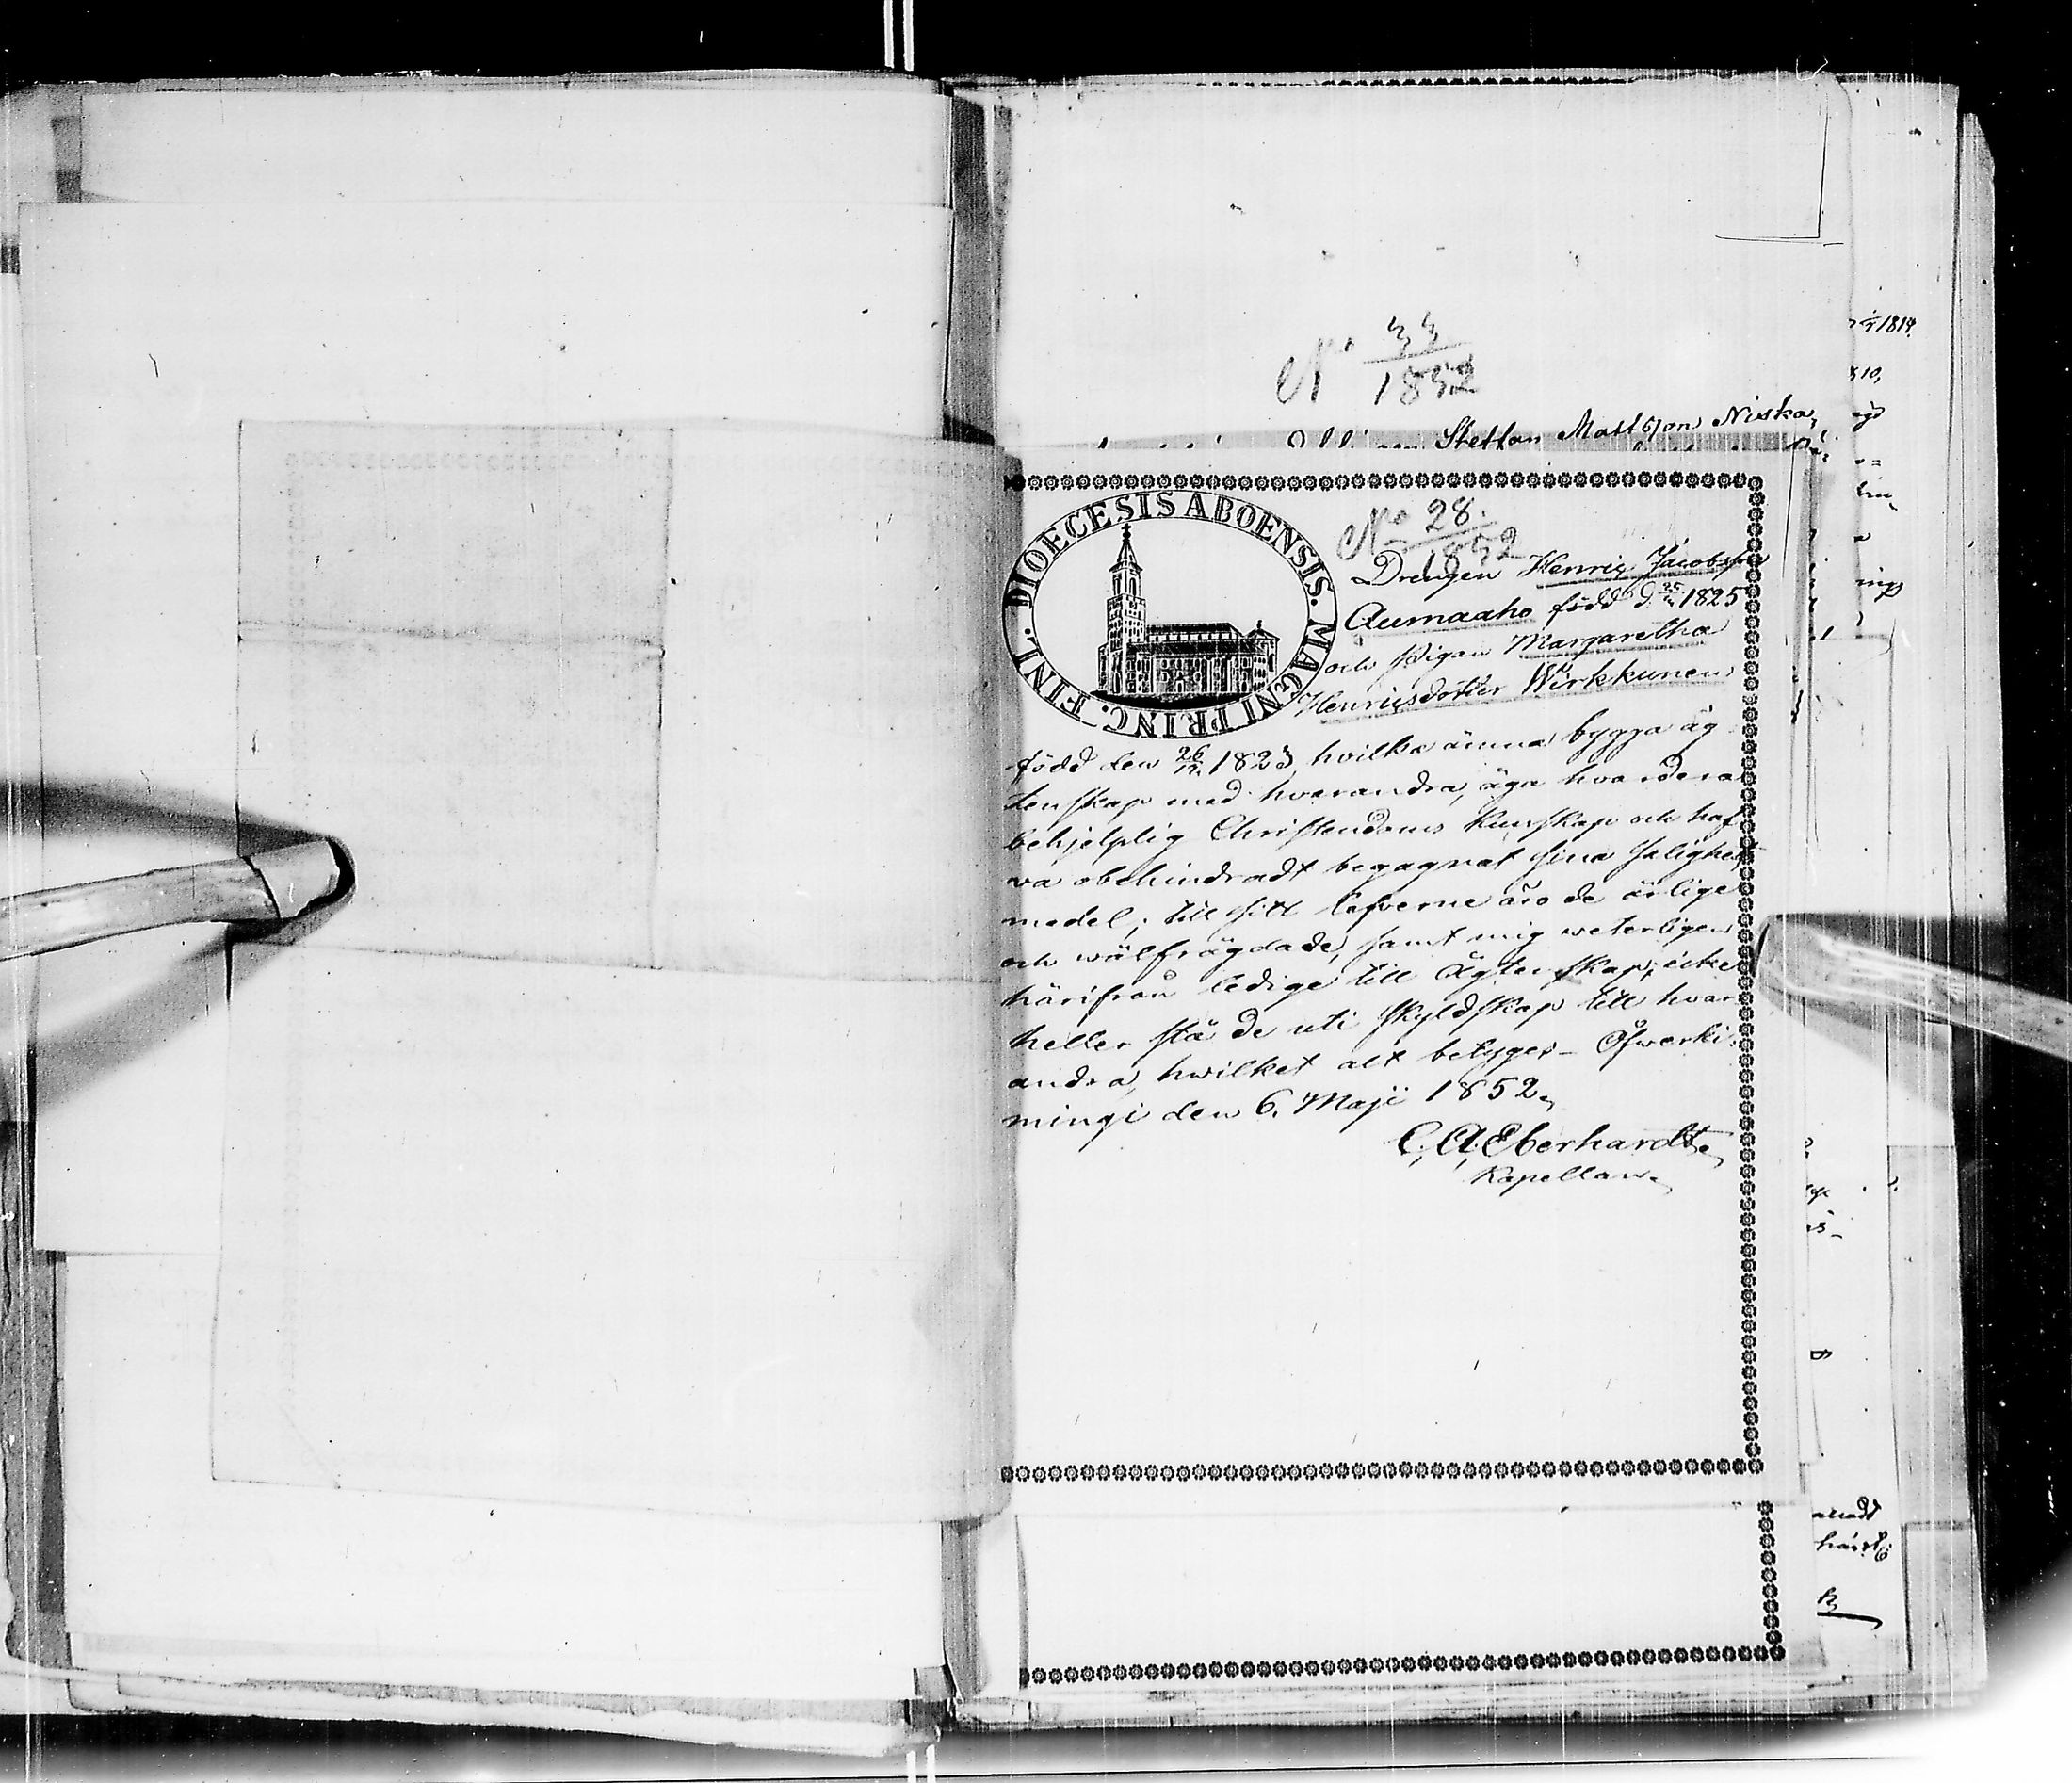 No 33
1852
Steffan Mattsson Niska
DIOECESIS ABOENSIS. MAGNI PRINC. FINL.
No 28.
1852
Drengen Henric Jacobsson
Aumaaho född d. 1825
och Pigan Margaretha
Henricsdotter Wirkkunen
född den 26/12 1823, hvilka ämna bygga äg
tenskap med hvarandra, äga hvardera
behjelplig Christendoms kunskap och haf
va obehindradt begagnat sina salighets
medel; till sitt lefverne äro de ärlige
och wälfrägdade, samt mig weterligen
härifrån ledige till Ägtenskap; icke
heller stå de uti skyldskap till hvar
andra, hwilket alt betyges – Öfwerki
mingi den 6. Maji 1852.
C. A. Eberhardt
Kapellan.
1814